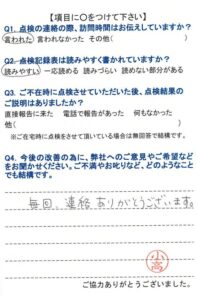 【項目に○をつけて下さい】
Q1. 点検の連絡の際、訪問時間はお伝えしていますか?
言われた 言われなかった その他( )
Q2. 点検記録表は読みやすく書かれていますか?
読みやすい 一応読める 読みづらい 読めない部分がある
Q3. ご不在時に点検させていただいた後、点検結果の
ご説明はありましたか?
直接報告に来た 電話で報告があった 何もなかった
他( )
※ご在宅時に点検をさせて頂いている場合は無回答で結構です。
Q4. 今後の改善の為に、弊社へのご意見やご希望など
をお聞かせください。ご不満やお叱りなど、どのようなこと
でも結構です。
毎回、連絡ありがとうございます。
小高
ご協力ありがとうございました。